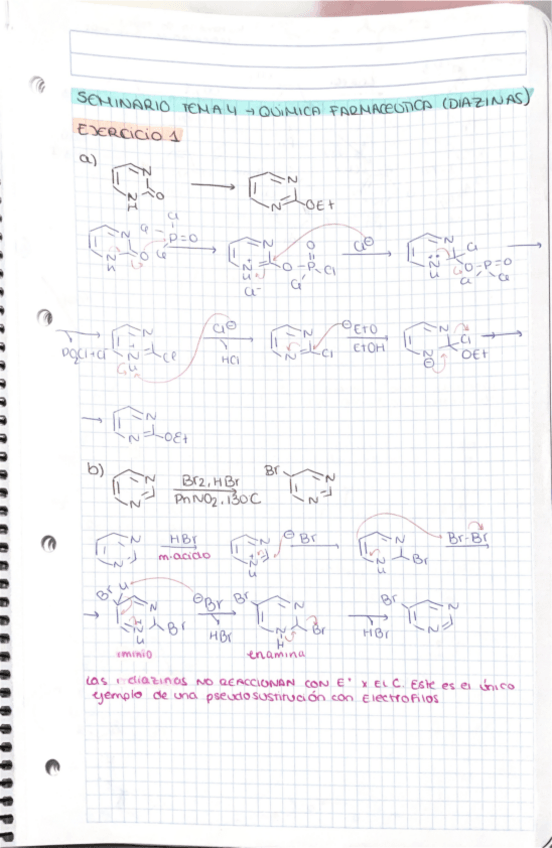 SEMINARIO TEMA 4 → QUIMICA FARMACEUTICA (DIAZINAS)
EJERCICIO 1
a)
N
N
H
O
N
N
OEt
Cl
Cl
P=O
Cl
N
N
H
O
N
N
H
O-P-Cl
O
Cl
Cl⁻
Cl⊖
N
N
H
Cl
O-P=O
Cl
Cl
PO2Cl+Cl
N
N
H
Cl
Cl⊖
HCl
N
N
Cl
⊖EtO
EtOH
N
N
⊖
Cl
OEt
N
N
OEt
b)
N
N
Br2, HBr
PhNO2, 130C
Br
N
N
HBr
m.acido
N
N
H
⊖Br
N
N
H
Br
Br-Br
Br
H
N
N
H
Br
iminio
⊖Br
HBr
Br
N
N
H
Br
enamina
HBr
Br
N
N
Las 1-diazinas NO REACCIONAN CON E⁺ x el C. Este es el único
ejemplo de una pseudosustitución con Electrofilos